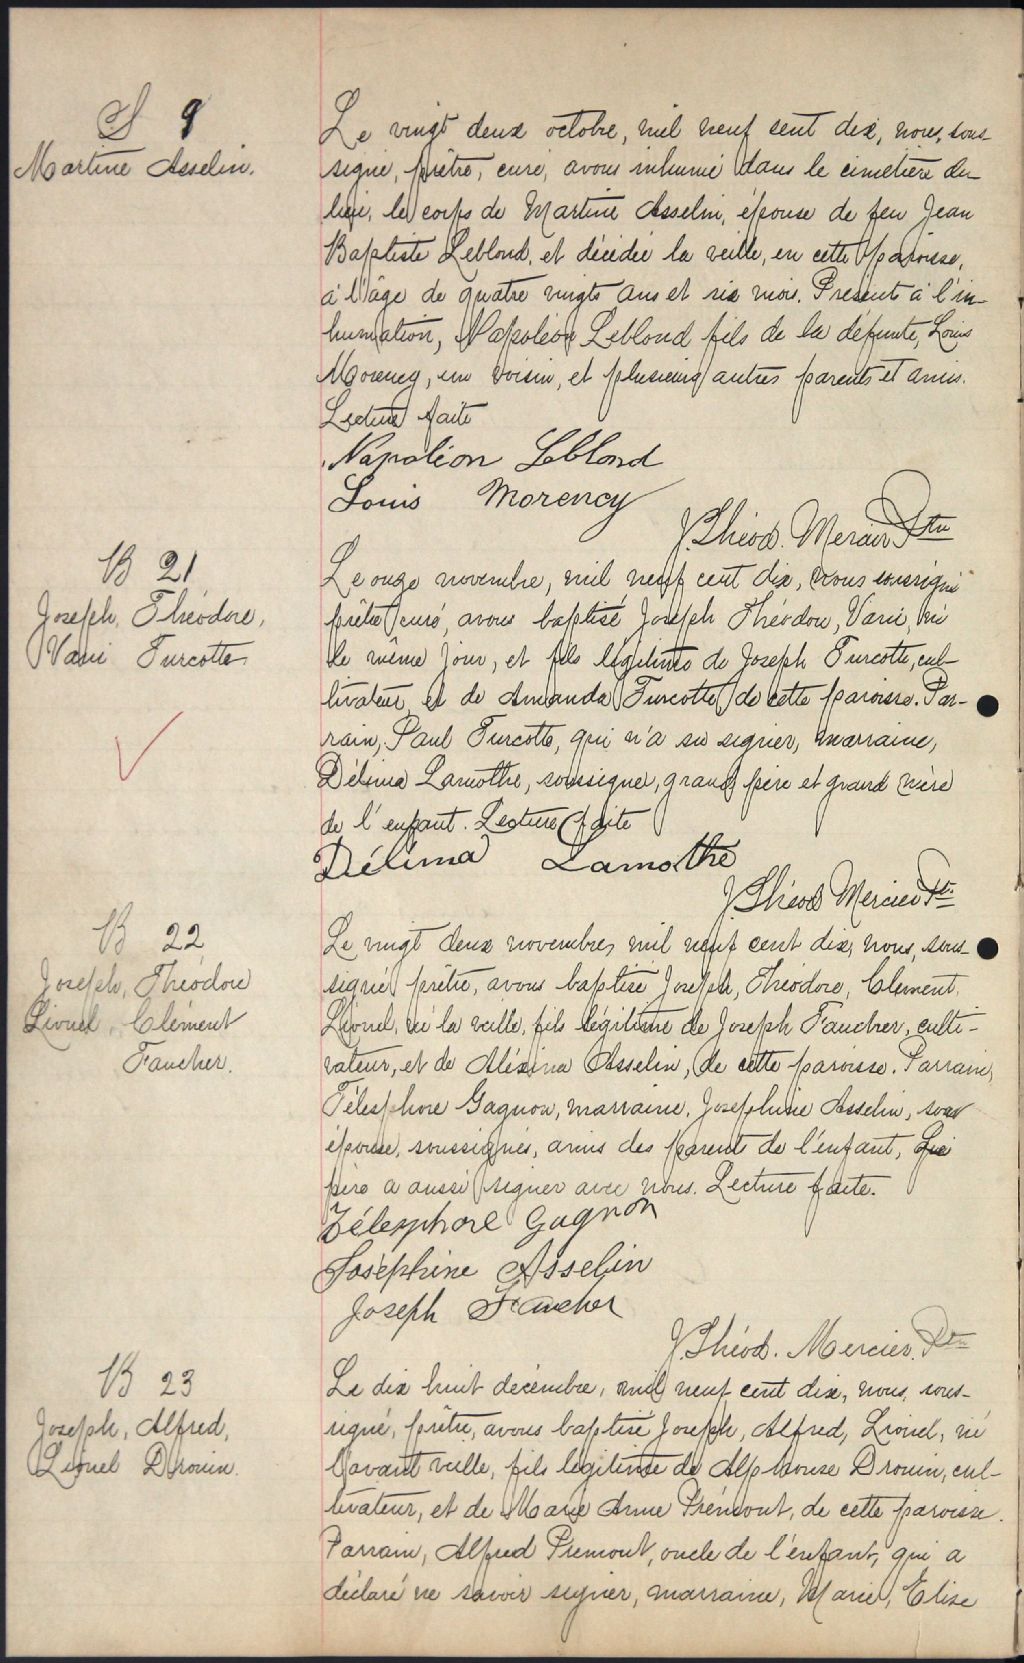 S 9
Martine Asselin.
Le vingt deux octobre, mil neuf cent dix, nous, sous-
signé, prêtre, curé, avons inhumé dans le cimetière du
lieu, le corps de Martine Asselin, épouse de feu Jean
Baptiste Leblond, et décédée la veille, en cette paroisse,
à l'âge de quatre vingts ans et six mois. Présents à l'in-
humation, Napoléon Leblond fils de la défunte, Louis
Morency, un voisin, et plusieurs autres parents et amis.
Lecture faite
Napoléon Leblond
Louis Morency
J. Théod. Mercier Ptre
B 21
Joseph, Théodore,
Vani Turcotte
Le onze novembre, mil neuf cent dix, nous soussigné
prêtre curé, avons baptisé Joseph Théodore, Vani, né
le même jour, et fils légitime de Joseph Turcotte, cul-
tivateur, et de Amanda Turcotte de cette paroisse. Par-
rain, Paul Turcotte, qui n'a su signer, marraine,
Délima Lamothe, soussigné, grand père et grand mère
de l'enfant. Lecture faite
Délima Lamothe
J. Théod Mercier Ptr.
B 22
Joseph, Théodore
Lionel, Clément
Faucher.
Le vingt deux novembre, mil neuf cent dix, nous, sous-
signé prêtre, avons baptisé Joseph, Théodore, Clément,
Lionel, né la veille, fils légitime de Joseph Faucher, culti-
vateur, et de Aléxina Asselin, de cette paroisse. Parrain,
Télesphore Gagnon, marraine, Joséphine Asselin, son
épouse, soussignés, amis des parents de l'enfant, Le
père a aussi signer avec nous. Lecture faite.
Télesphore Gagnon
Joséphine Asselin
Joseph Faucher
J. Théod. Mercier, Ptre
B 23
Joseph, Alfred,
Lionel Drouin.
Le dix huit décembre, mil neuf cent dix, nous, sous-
signé, prêtre, avons baptisé Joseph, Alfred, Lionel, né
l'avant veille, fils légitime de Alphonse Drouin, cul-
tivateur, et de Marie Anne Prémont, de cette paroisse.
Parrain, Alfred Premont, oncle de l'enfant, qui a
déclaré ne savoir signer, marraine, Marie, Elise